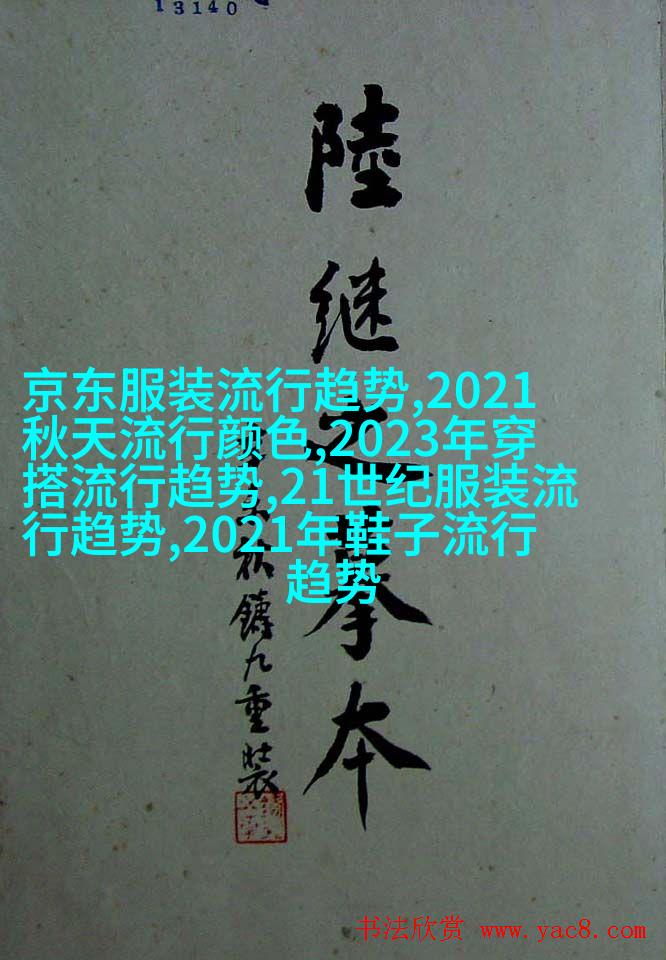 13140
陸继之摹本
鑄九重裝
京东服装流行趋势,2021
秋天流行颜色,2023年穿
搭流行趋势,21世纪服装流
行趋势,2021年鞋子流行
趋势
书法欣赏 www.yac8.com